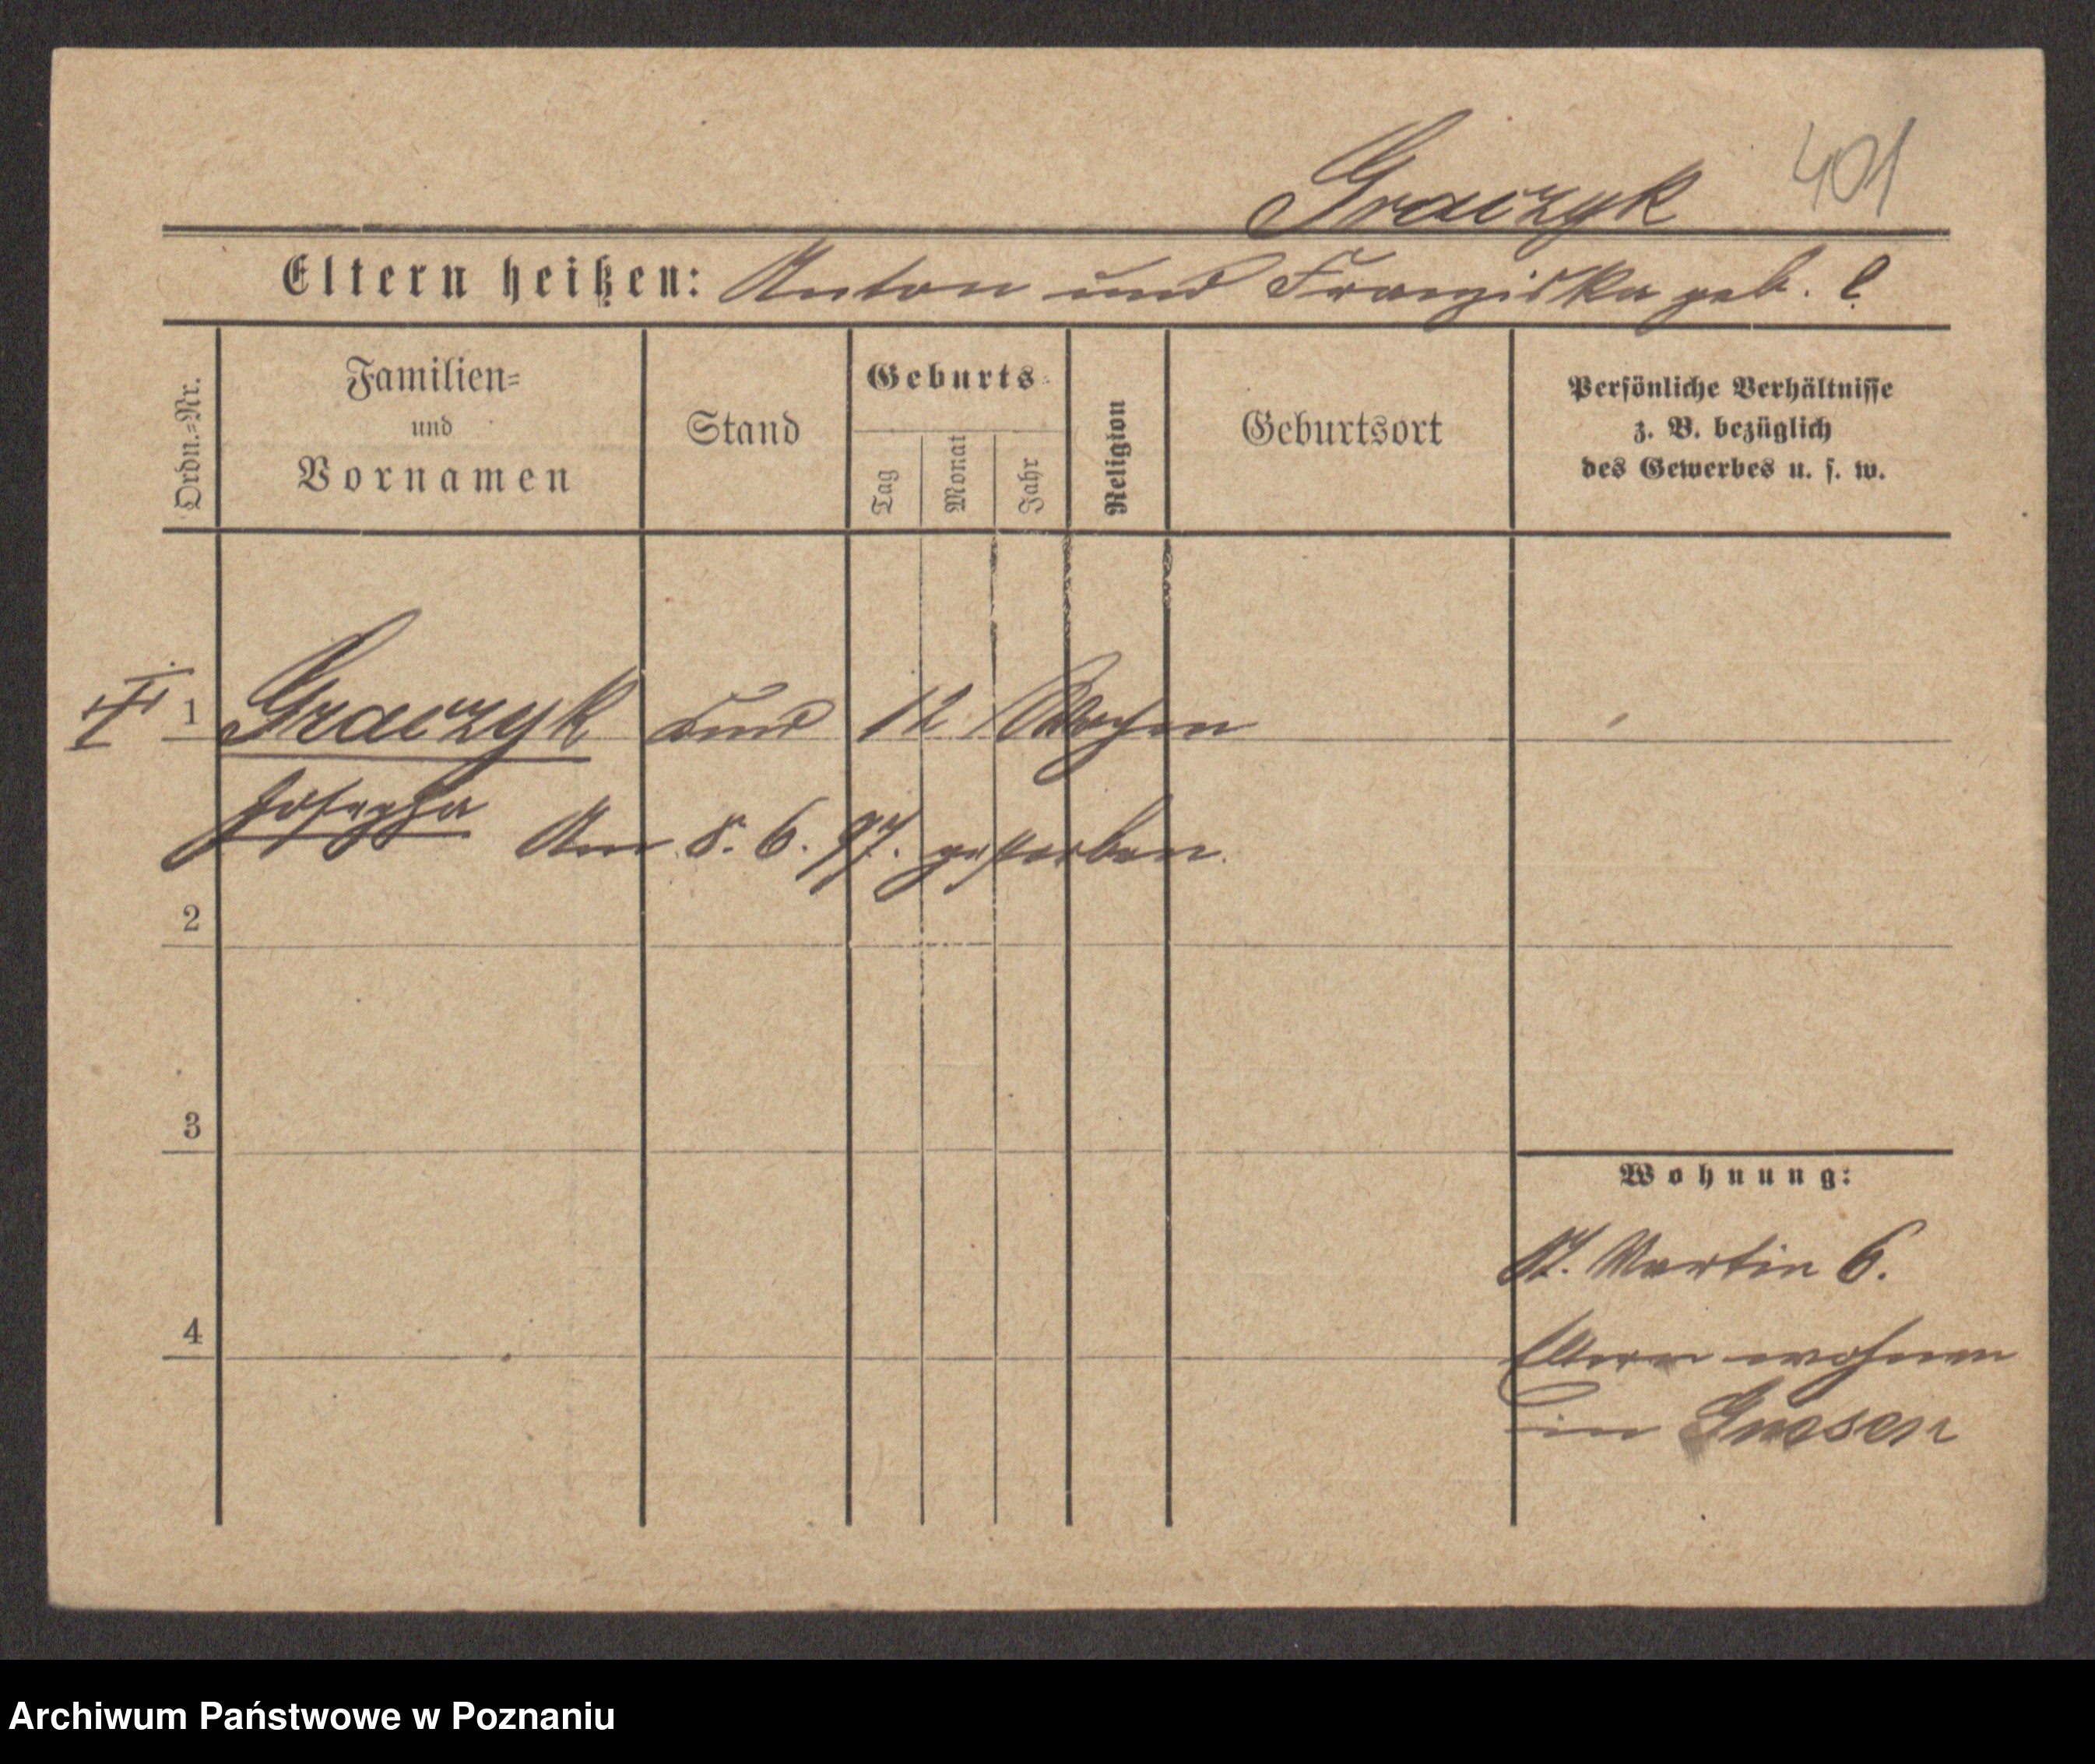 Graczyk 401
Eltern heißen: Anton und Franziska geb. ?
Ordn.=Nr.
Familien=
und
Vornamen
Stand
Geburts=
Tag
Monat
Jahr
Religion
Geburtsort
Persönliche Verhältnisse
z. B. bezüglich
des Gewerbes u. s. w.
1 Graczyk Kind 12 Wochen
Josepha
Am 8. 6. 97. gestorben.
2
3
Wohnung:
St. Martin 6.
4
Eltern wohnen
in Gnesen
Archiwum Państwowe w Poznaniu